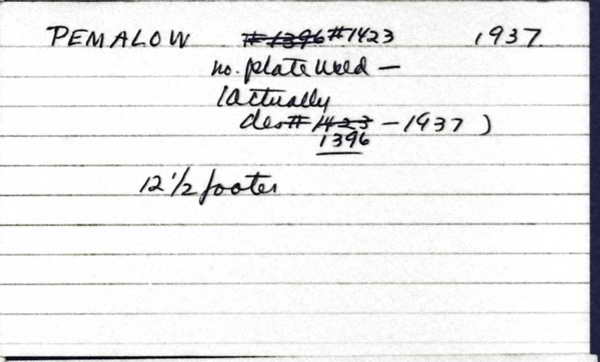 PEMALOW #1396 #1423 1937
no. plate used —
(Actually
des# 1423 - 1937)
1396
12 1/2 footer